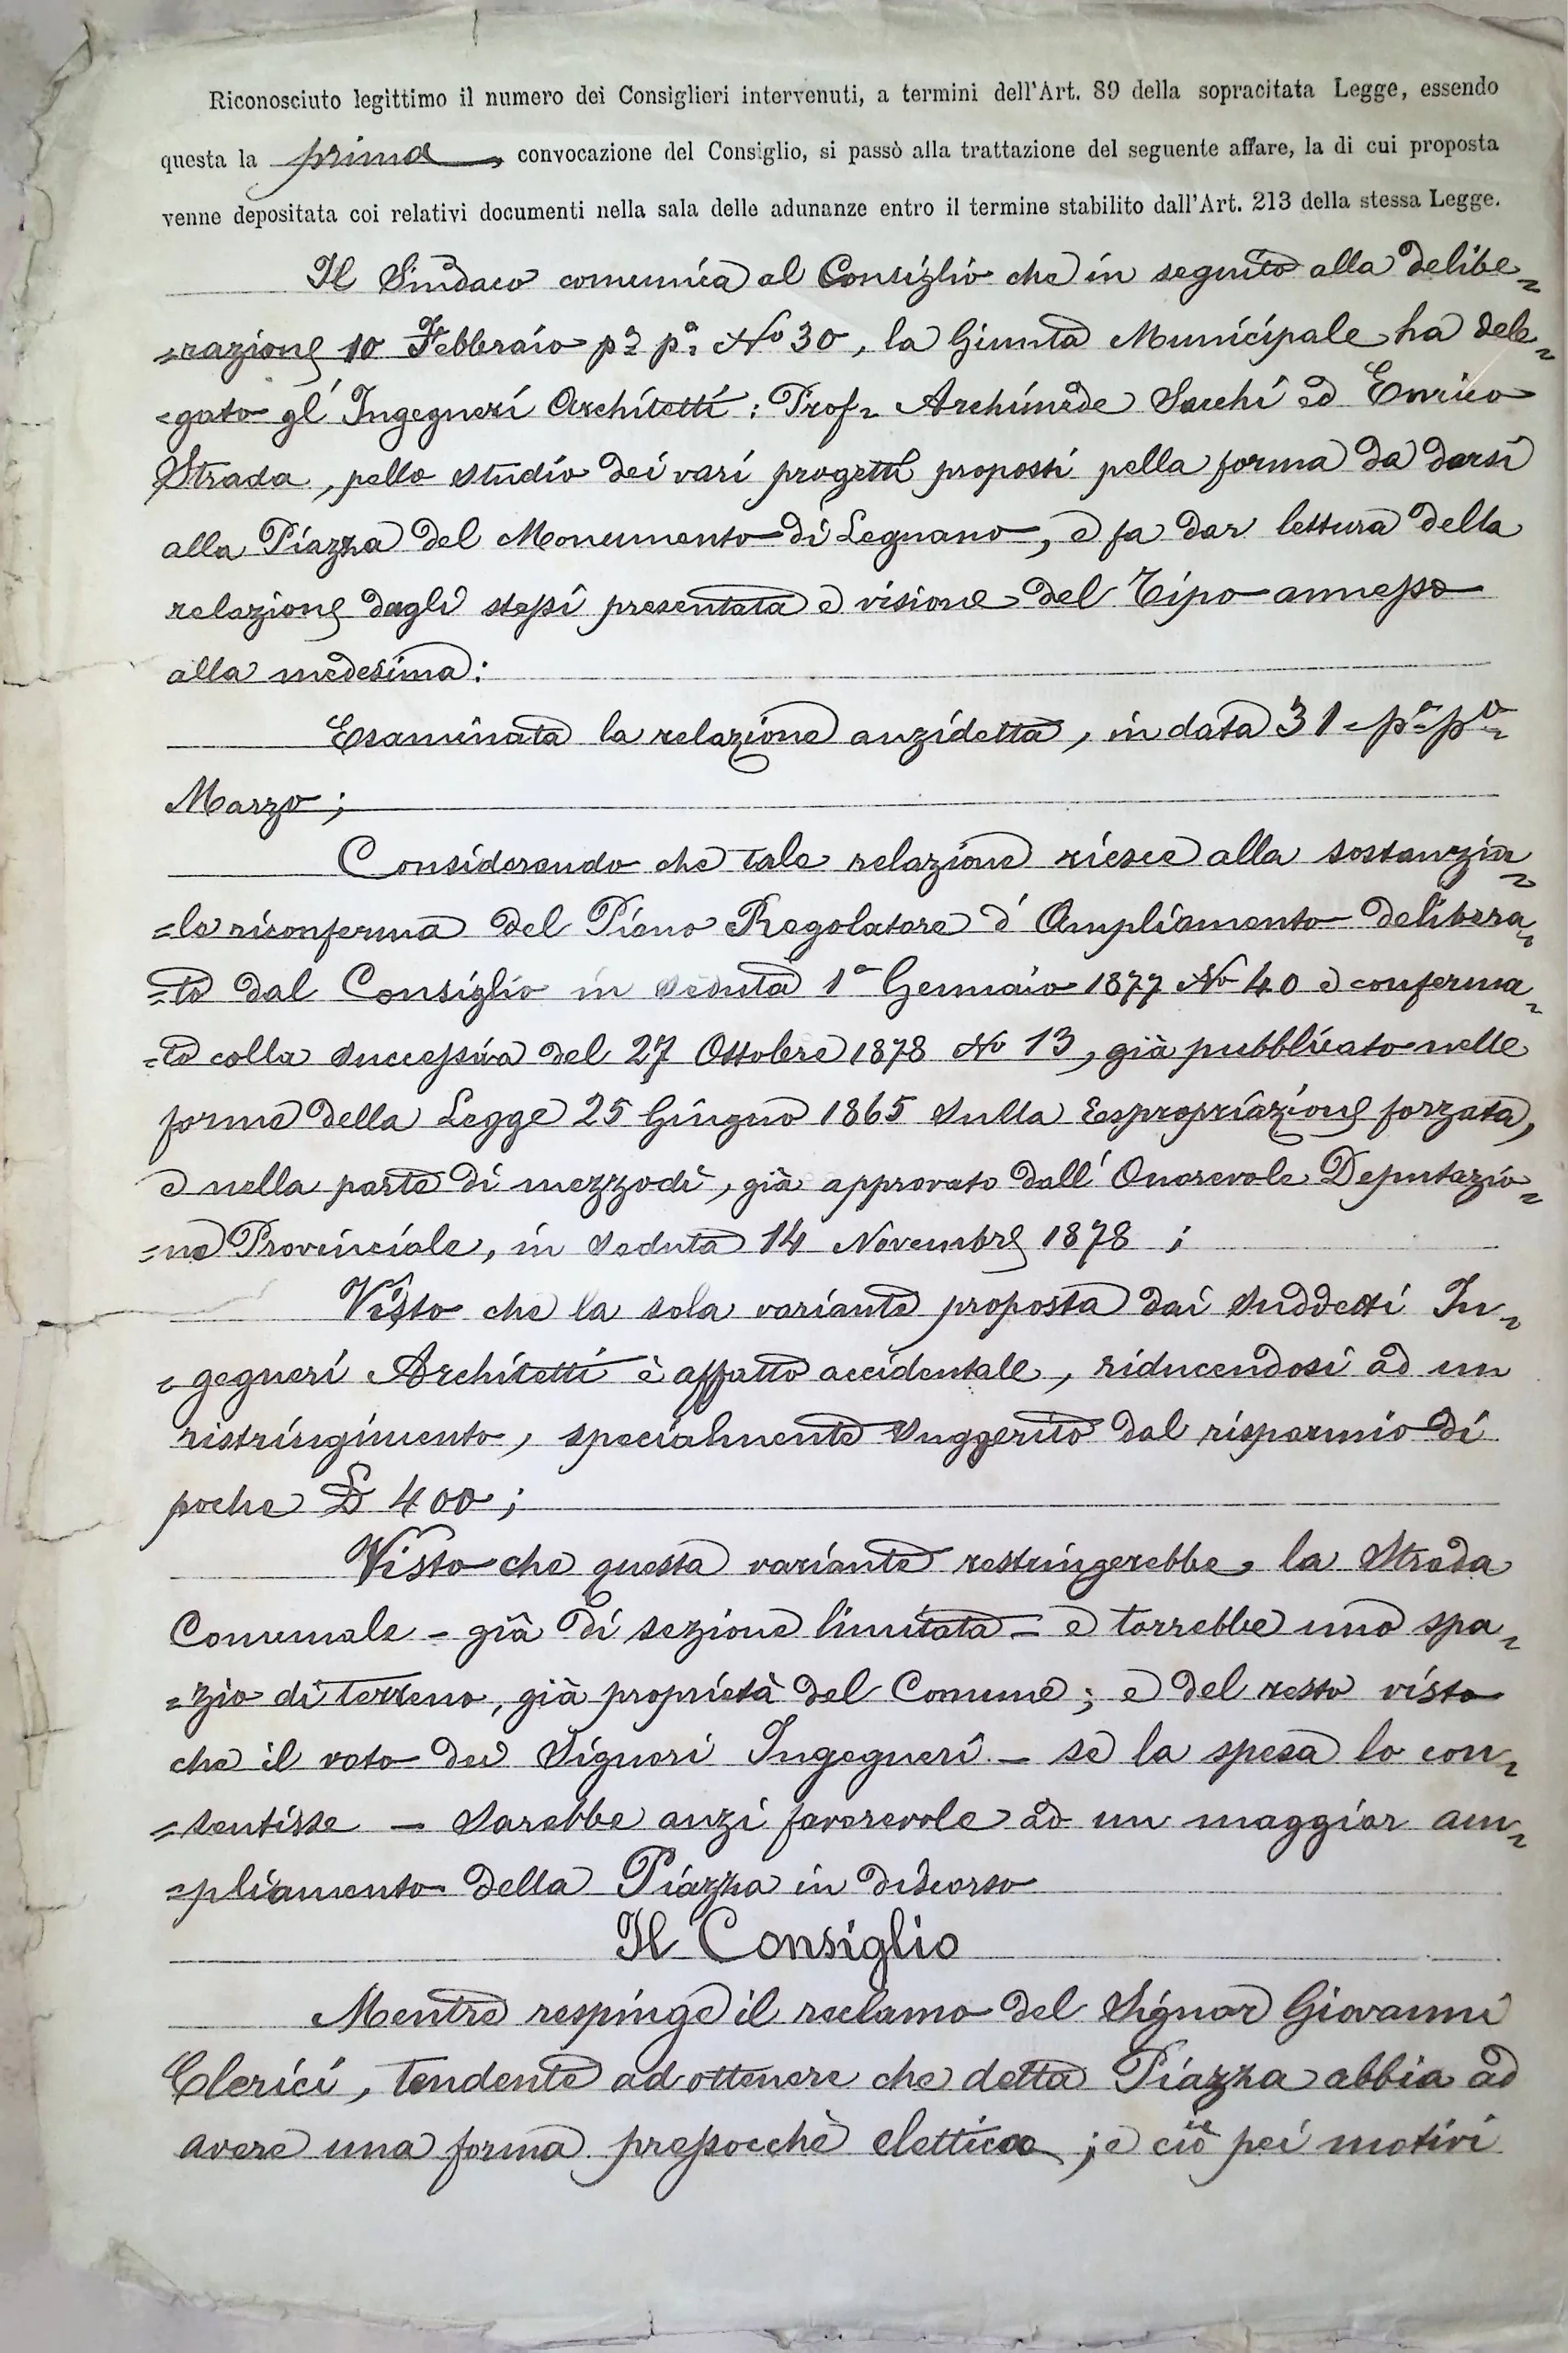 Riconosciuto legittimo il numero dei Consiglieri intervenuti, a termini dell'Art. 89 della sopracitata Legge, essendo
questa la prima convocazione del Consiglio, si passò alla trattazione del seguente affare, la di cui proposta
venne depositata coi relativi documenti nella sala delle adunanze entro il termine stabilito dall'Art. 213 della stessa Legge.
Il Sindaco comunica al Consiglio che in seguito alla delibe=
=razione 10 Febbraio po. po. No 30, la Giunta Municipale ha dele=
=gato gl'Ingegneri Architetti: Prof. Archimede Sacchi ed Enrico
Strada, pello studio dei vari progetti proposti pella forma da darsi
alla Piazza del Monumento di Legnano, e fa dar lettura della
relazione dagli stessi presentata e visione del Tipo annesso
alla medesima:
Esaminata la relazione anzidetta, in data 31 po. po.
Marzo;
Considerando che tale relazione riesce alla sostanzia=
=le riconferma del Piano Regolatore d'Ampliamento delibera=
=to dal Consiglio in seduta 1o Gennaio 1877 No 40 e conferma=
=to colla successiva del 27 Ottobre 1878 No 13, già pubblicato nelle
forme della Legge 25 Giugno 1865 sulla Espropriazione forzata,
e nella parte di mezzodì, già approvato dall'Onorevole Deputazio=
=ne Provinciale, in seduta 14 Novembre 1878;
Visto che la sola variante proposta dai suddetti In=
=gegneri Architetti è affatto accidentale, riducendosi ad un
ristringimento, specialmente suggerito dal risparmio di
poche L 400;
Visto che questa variante restringerebbe la Strada
Comunale - già di sezione limitata - e torrebbe uno spa=
=zio di terreno, già proprietà del Comune; e del resto visto
che il voto dei Signori Ingegneri - se la spesa lo con=
=sentisse - sarebbe anzi favorevole ad un maggior am=
=pliamento della Piazza in discorso
Il Consiglio
Mentre respinge il reclamo del Signor Giovanni
Clerici, tendente ad ottenere che detta Piazza abbia ad
avere una forma pressocchè elettica; e ciò pei motivi